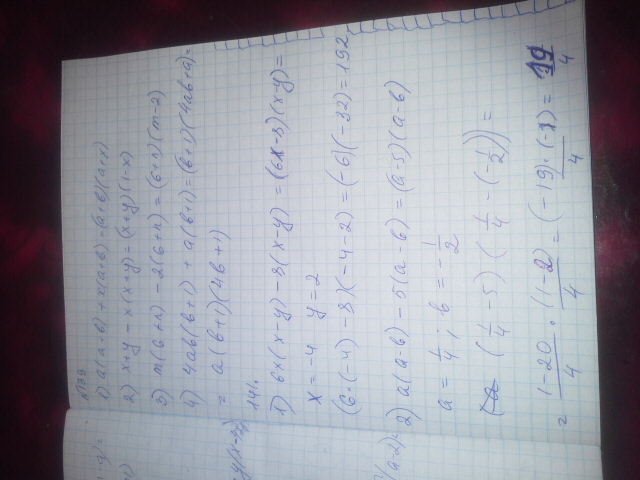 N139
1) a(a+b)+x(a+b)=(a+b)(a+x)
2) x+y-x(x+y)=(x+y)(1-x)
3) m(6+n)-2(6+n)=(6+n)(m-2)
4) 4ab(b+1)+a(b+1)=(b+1)(4ab+a)=
= a(b+1)(4b+1)
141.
1) 6x(x-y)-8(x-y)=(6x-8)(x-y)=
x=-4 y=2
(6·(-4)-8)(-4-2)=(-6)(-32)=192
2) a(a-b)-5(a-b)=(a-5)(a-b)
a=1/4; b=-1/2
(1/4-5)(1/4-(-1/2))=
= 1-20/4 · (1-2)/4 = (-19)·(-1)/4 = 19/4